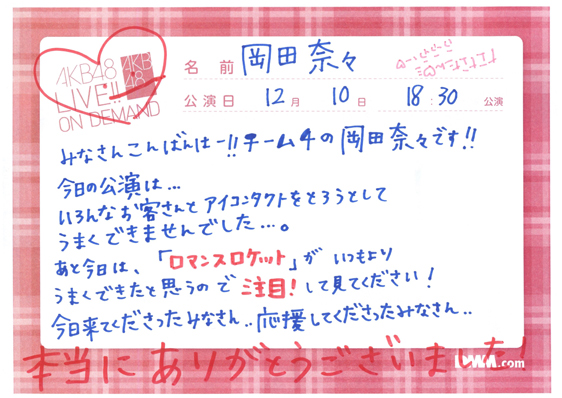 AKB48
LIVE!!
ON DEMAND
AKB
48
名前 岡田奈々
公演日 12月 10日 18:30 公演
みなさんこんばんはー!!チーム4の岡田奈々です!!
今日の公演は...
いろんなお客さんとアイコンタクトをとろうとして
うまくできませんでした...。
あと今日は、「ロマンスロケット」が いつもより
うまくできたと思うので 注目!して見てください!
今日来てくださったみなさん..応援してくださったみなさん..
本当にありがとうございました!
DMM.com